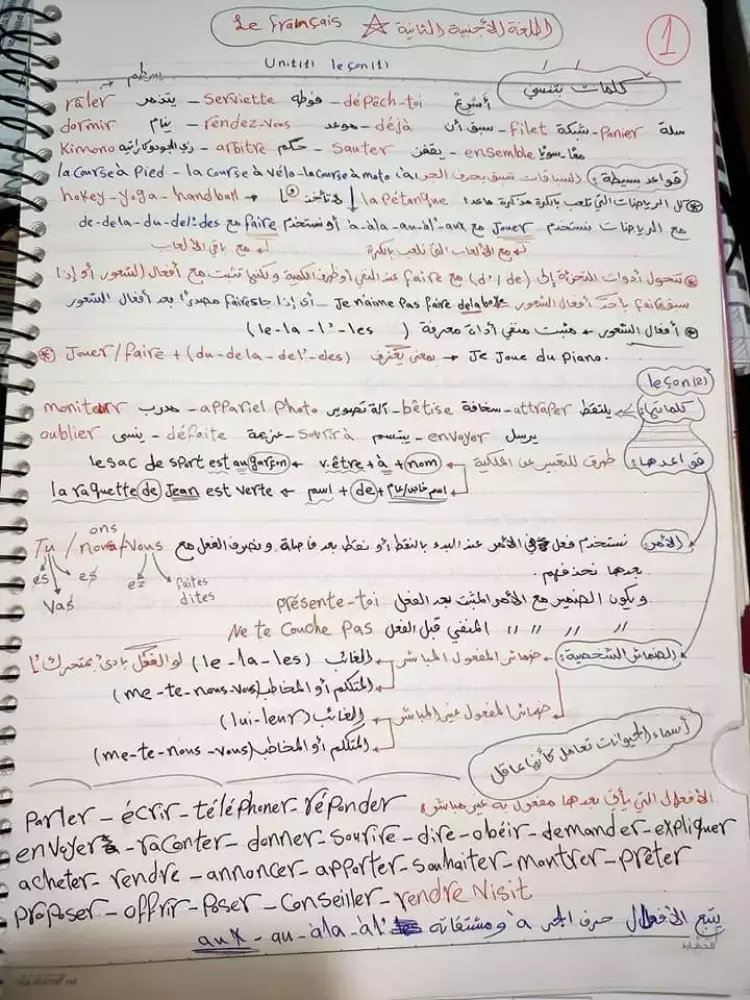 Le français ☆ اللغة الأجنبية الثانية
1
Unit(1) leçon(1)
كلمات بتنسي
râler يتذمر - serviette فوطة - dépêch-toi أسرع
dormir ينام - rendez-vous موعد - déjà سبق أن - filet شبكة - panier سلة
Kimono زي الجودو/كاراتيه - arbitre حكم - sauter يقفز - ensemble معا سويا
قواعد بسيطة: السباقات تسبق بحرف الجر à la course à Pied - la course à vélo - la course à moto
كل الرياضات التي تلعب بالكرة مذكرة ماعدا la pétanque لا تأخذ l' ← hokey - yoga - handball
مع الرياضات نستخدم Jouer مع à-àla-au-àl'-aux أو نستخدم faire مع de-dela-du-del'-des
مع الألعاب التي تلعب بالكرة مع باقي الألعاب
تتحول أدوات التجزئة إلى (de / d') مع faire عند النفي أو ظرف الكمية ولكنها تثبت مع أفعال الشعور أو إذا
سبق faire بأحد أفعال الشعور Je n'aime pas faire dela boxe أي إذا جاء faire مصدرًا بعد أفعال الشعور
أفعال الشعور + مثبت منفي أداة معرفة (le - la - l' - les)
Jouer/faire + (du - dela - del' - des) بمعنى يعزف ← Je Joue du Piano.
leçon(2)
كلماتها: attraper يلتقط - bêtise سخافة - appariel Photo آلة تصوير - moniteur مدرب
envoyer يرسل - sourire à يبتسم - défaite هزيمة - oublier ينسى
قواعدها: طرق للتعبير عن الملكية v.être + à + nom ← le sac de sport est au garçon
اسم + de + اسم خاص/عام ← la raquette de Jean est verte
ons
الأمر: نستخدم فعل في الأمر عند البدء بالنقط أو نقط بعد فاصلة ونصرف الفعل مع Tu / nous / vous
بعدها نحذفهم. es es ez faites
vas dites
ويكون الضمير مع الأمر المثبت بعد الفعل présente-toi
" " " " المنفي قبل الفعل Ne te couche pas
الضمائر الشخصية: ضمائر المفعول المباشر الغائب (le - la - les) لو الفعل بادئ بمتحرك l'
المتكلم أو المخاطب (me - te - nous - vous)
ضمائر المفعول غير المباشر الغائب (lui - leur)
المتكلم أو المخاطب (me - te - nous - vous)
أسماء الحيوانات تعامل كأنها عاقل
الأفعال التي يأتي بعدها مفعول به غير مباشر Parler - écrir - téléphoner - réponder
envoyer - raconter - donner - sourire - dire - obéir - demander - expliquer
acheter - rendre - annoncer - apporter - souhaiter - montrer - prêter
proposer - offrir - Poser - conseiller - rendre Visit
يتبع الأفعال حرف الجر à ومشتقاته àl' - àla - au - aux